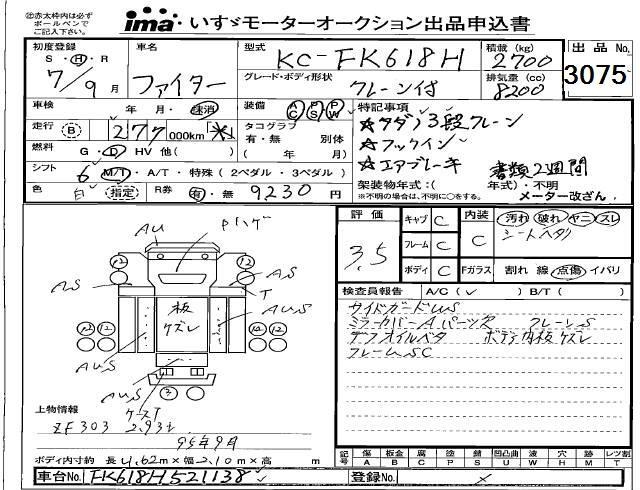 ㊟赤太枠内は必ず
ボールペンで
ご記入下さい。
ima いすゞモーターオークション出品申込書
出品No.
3075
初度登録 S・H・R 7/9月
車名 ファイター
型式 KC-FK618H
積載(kg) 2700
グレード・ボディ形状 クレーン付
排気量(cc) 8200
車検 年 月・抹消
装備 AC PS PW
特記事項
☆タダノ3段クレーン
☆フックイン
☆エアブレーキ
書類2週間
走行 B 277 000km
タコグラフ 有・無 別体
( 年 月)
燃料 G・D HV 他( )
シフト 6 M/T・A/T・特殊(2ペダル・3ペダル)
架装物年式:( 年式)・不明
※不明の場合は、不明に○をする。 メーター改ざん
色 白 指定
R券 有・無 9230円
評価 3.5
キャブ C
フレーム C
ボディ C
内装 C
汚れ 破れ ヤニ スレ
シートヘタリ
Fガラス 割れ 線 点傷 イバリ
検査員報告 A/C(✓) B/T( )
サイドガードUS
ミラーカバーAパーツ欠 クレーンS
デフオイルベタ ボディ内板ケズレ
フレームSC
AU
Pハゲ
12
12
AS
AS
T
板
ケズレ
AUS
12 12
12 12
AUS
AUS
3
ゲートT
上物情報
ZF303 2.93t
95年9月
ボディ内寸約 長4.62m×幅2.10m×高 m
記号 傷A 板金B 腐C 塗P 錆S 凹凸曲U 波W 穴H 跡M レツ割T
車台No. FK618H521138
登録No.